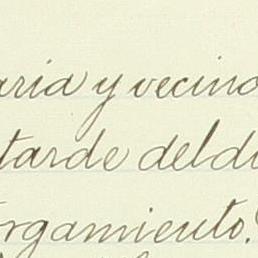 aria y vecino
tarde del di
rgamiento.